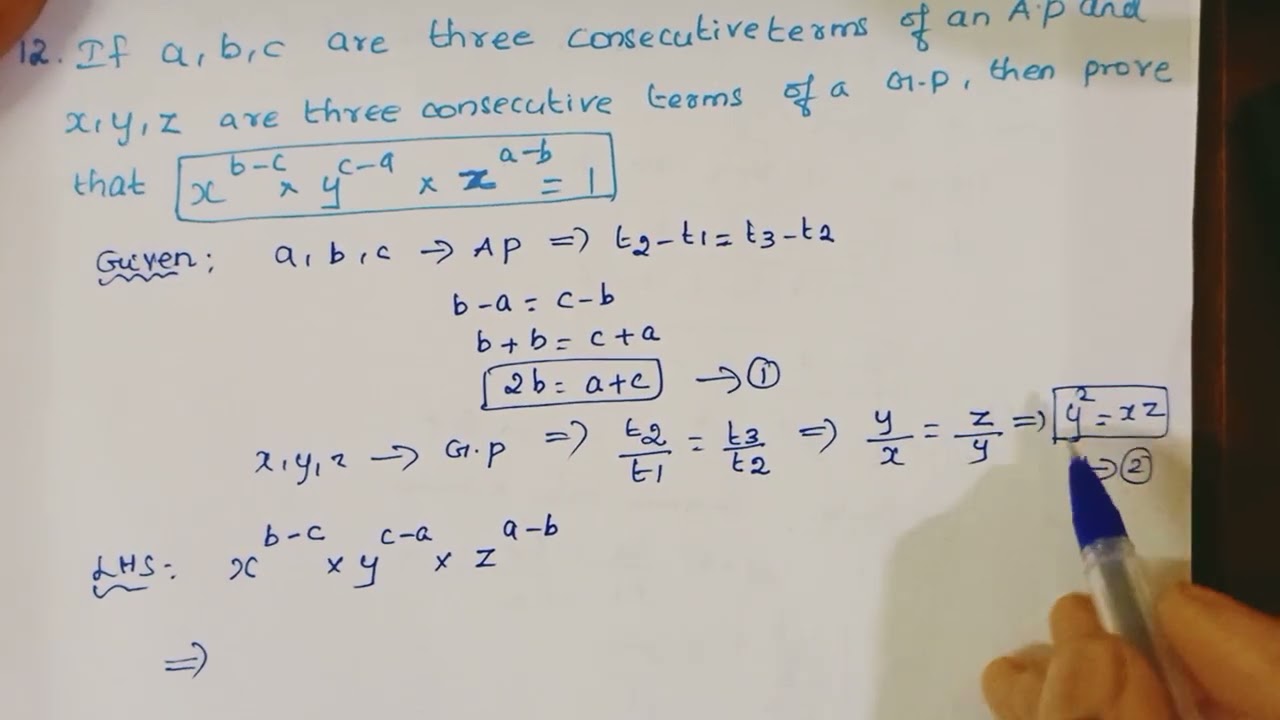 12. If a, b, c are three consecutive terms of an A.P and
x, y, z are three consecutive terms of a G.P, then prove
that x^{b-c} × y^{c-a} × z^{a-b} = 1
Given: a, b, c → AP ⇒ t2 - t1 = t3 - t2
b - a = c - b
b + b = c + a
2b = a + c → ①
x, y, z → G.P ⇒ t2/t1 = t3/t2 ⇒ y/x = z/y ⇒ y² = xz
→ ②
LHS: x^{b-c} × y^{c-a} × z^{a-b}
⇒